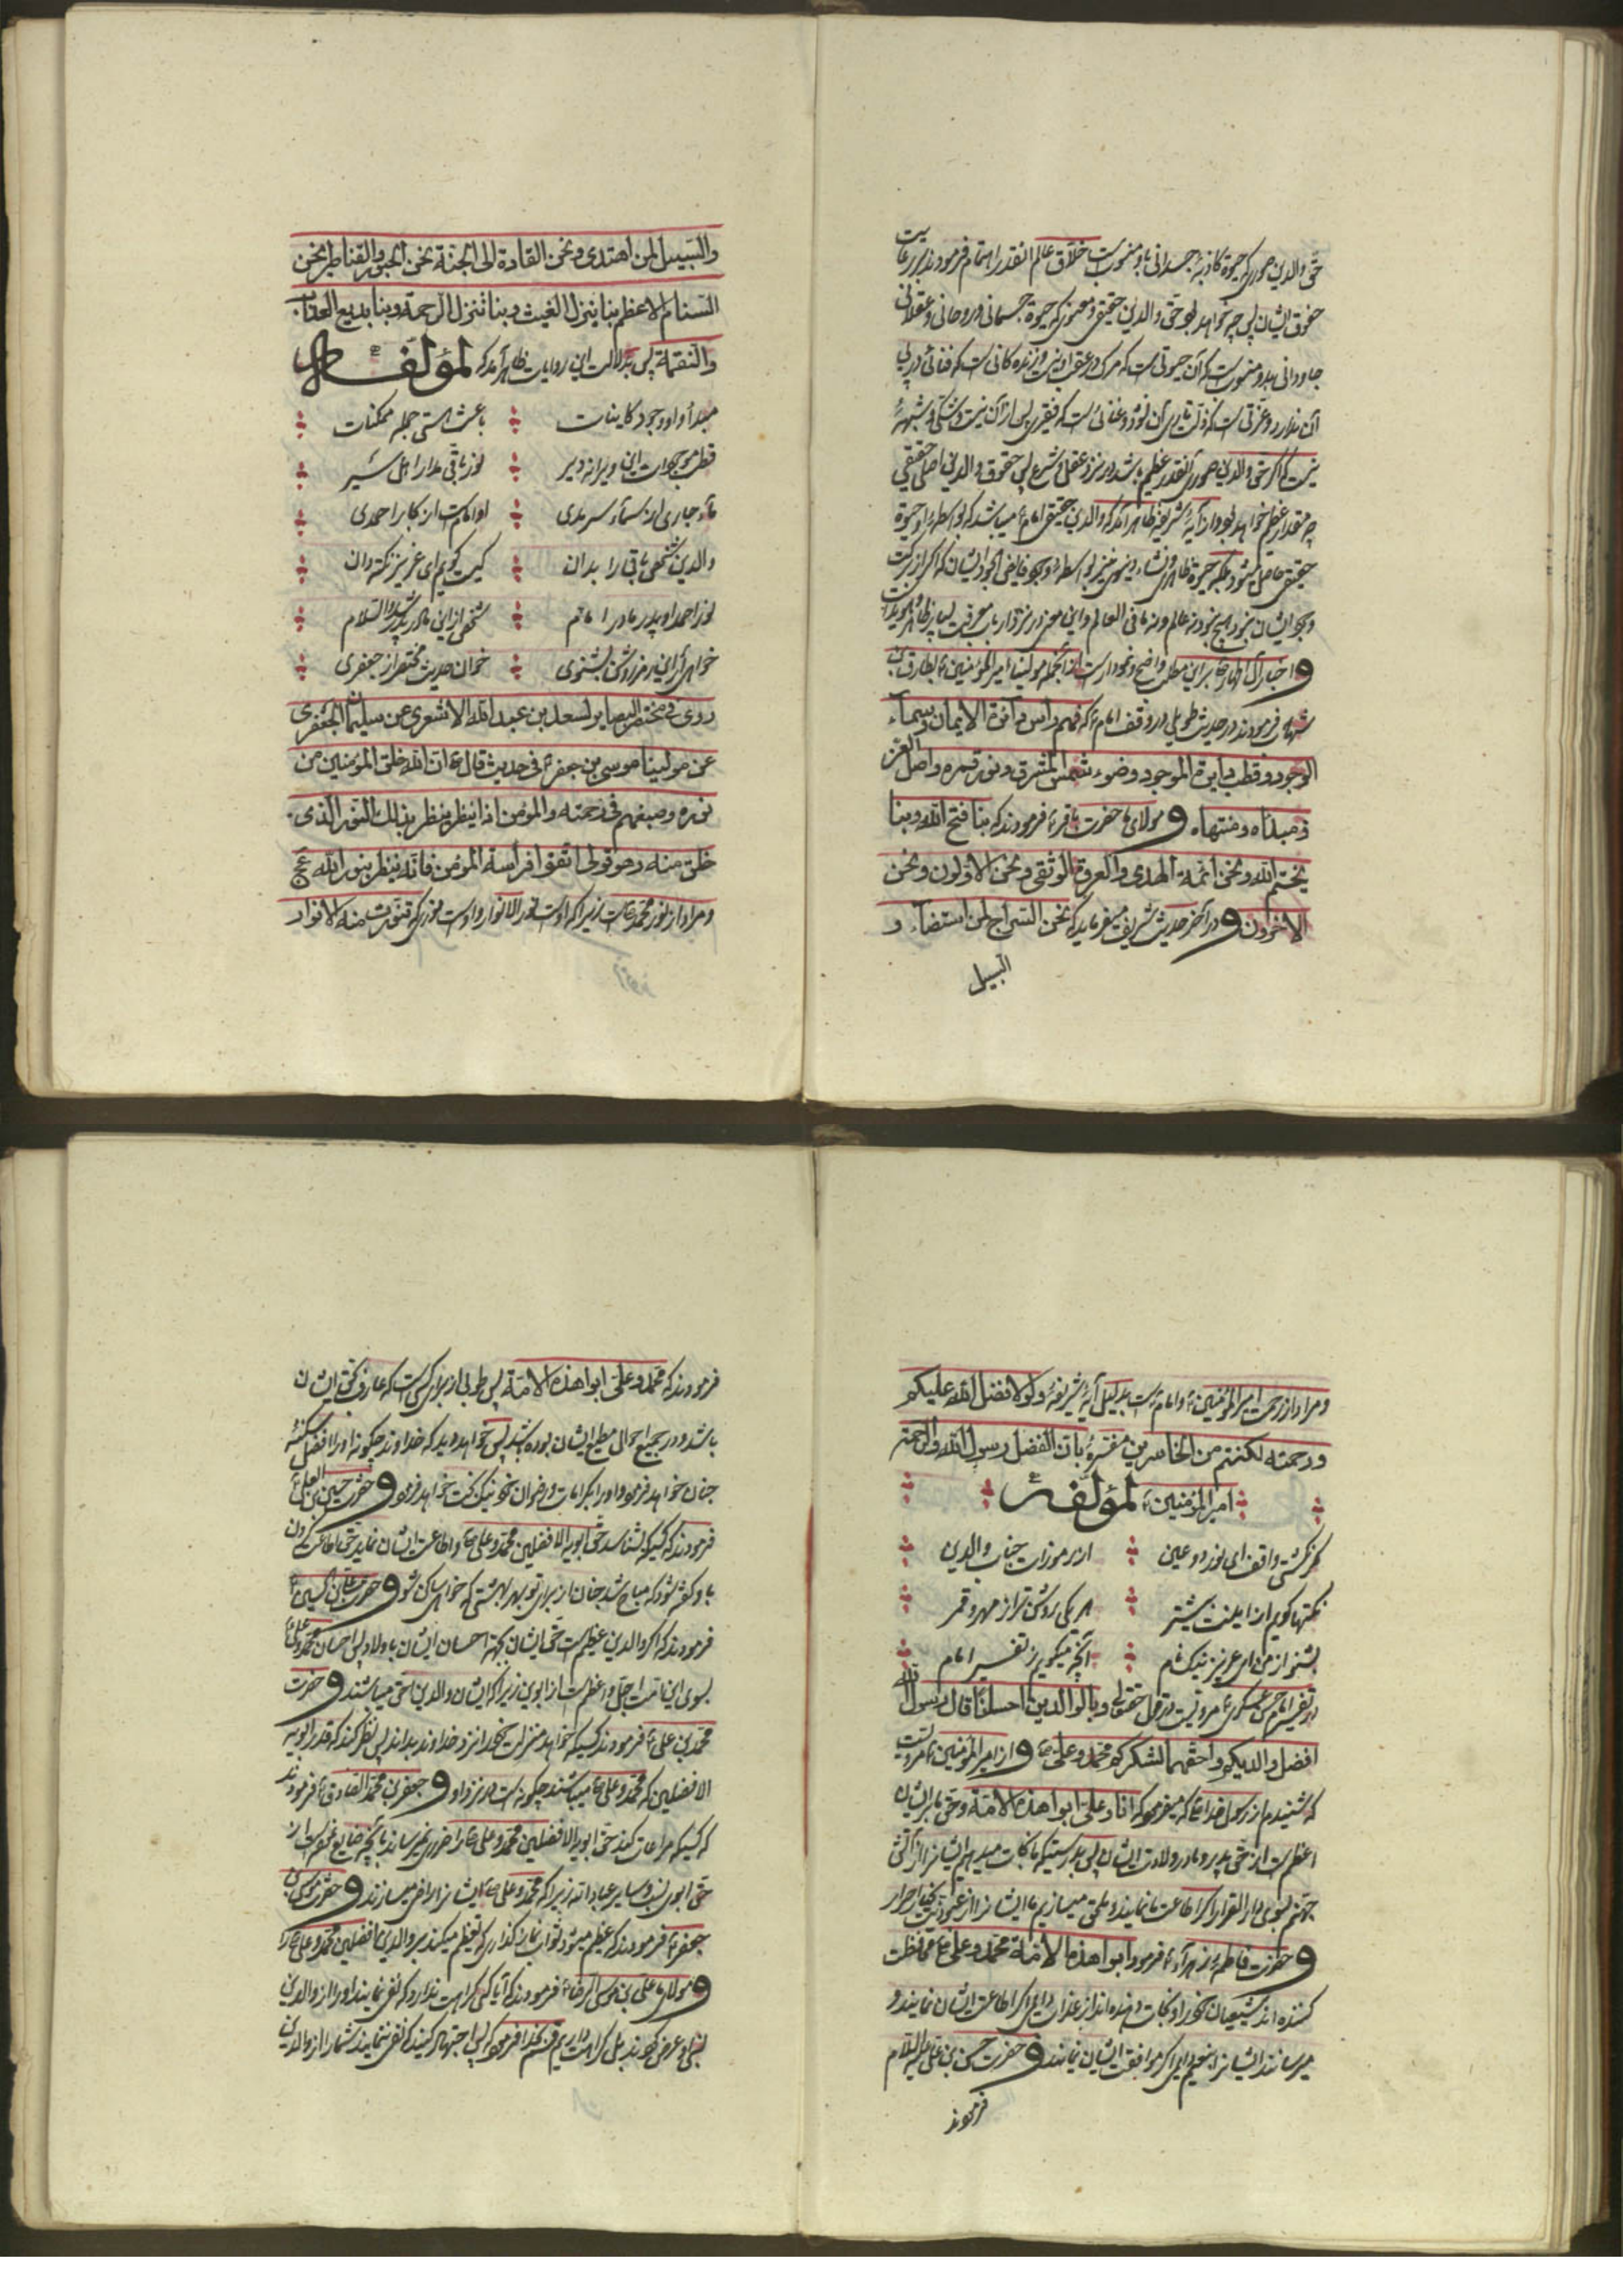 حق والدین صوری که حیوة کاذبهٔ جسدانی باو منسوبست خلاق عالم انقدر اهتمام فرمودند برعایت
حقوق ایشان پس چه خواهد بود حق والدین حقیقی و معنوی که حیوة جسمانی و روحانی و عقلانی
جاودانی بدو منسوبست که آن حیوتی است که مرک در عقب او نیست و زنده کانی است که فنائی در پی
آن ندارد و عزتی است که ذلت تاری آن نشود و غنائی است که فقیری پس از آن نیست و شکی و شبههٔ
نیست که اگر حق والدین صوری آنقدر عظیم باشد در نزد عقل و شرع پس حقوق والدین اصلی حقیقی
چه مقدار عظیم خواهد بود و از آیهٔ شریفه ظاهر آمد که والدین حقیقی امام ع میباشد که بواسطهٔ او حیوة
حقیقی حاصل میشود بلکه حیوة ظاهری و نشاء دنیوی نیز بواسطهٔ وجود فایض الجود ایشان که اگر از برکت
وجود ایشان نبود هیچ نبود نه عالم و نه ما فی العالم و این معنی در نزد ارباب معرفت بسیار ظاهر و هویداست
و اخبار آل اطهار ع بر این مطلب واضح و نمودار است از آنجمله مولینا امیر المؤمنین ع لطارق بن
شهاب فرمودند در حدیث طویلی در وصف امام ع که فهم راس دائرة الایمان و سماء
الوجود و قطب دایرة الموجود و ضوء شمس المشرق و نور قمره و اصل العز
و مبداه و منتهاه و مولای ما حضرت باقر ع فرمودند که بنا فتح الله و بنا
یختم الله و نحن ائمة الهدی و العروة الوثقی و نحن الاولون و نحن
الاخرون و در آخر حدیث شریف میفرماید که نحن السراج لمن استضاء و
السبیل
والسبیل لمن اهتدی و نحن القادة الی الجنة نحن الجسور والقناطر نحن
السنام الاعظم بنا ینزل الغیث و بنا تنزل الرحمة و بنا یدفع العذاب
والنقمة پس بدلالت این روایات ظاهر آمد که لمؤلفه
مبدأ او او وجود کاینات باعث هستی جمله ممکنات
قطب موجودات این ویرانه دیر نور باقی مدار اهل سیر
ماء جاری از سماء سرمدی او امامست از کبار احمدی
والدین شخص باقی را بدان کیست کویم ای عزیز نکته دان
نور احمد او پدر مادر امام شخص از این مادر پدر شد والسلام
خواهی ار این رمز روشن بشنوی خوان حدیث مختصر از جعفری
روی فی مختصر البصایر لسعد بن عبد الله الاشعری عن سلیمان الجعفری
عن مولینا موسی بن جعفر ع فی حدیث قال ع ان الله خلق المؤمنین من
نوره و صبغهم فی رحمته و المؤمن اذا ینظر ینظر بذلک النور الذی
خلق منه و هو قوله اتقوا فراسة المؤمن فانه ینظر بنور الله عج
و مراد از نور محمد ص است زیرا که اوست نور الانوار و اوست نوری که تنورت منه الانوار
و مراد از رحمت امیر المؤمنین ع و امام ع است بدلیل آیهٔ شریفهٔ و لولا فضل الله علیکم
و رحمته لکنتم من الخاسرین مفسرهٔ بان الفضل رسول الله و الرحمة
امیر المؤمنین ع لمؤلفه
کر نکشتی واقف ای نور دو عین از رموزات جناب والدین
نکتها کویم از اینت بیشتر هر یکی روشن تر از مهر و قمر
بشنو از من ای عزیز نیک نام آنچه میکویم ز تفسیر امام
در تفسیر امام حسن عسکری ع مرویست در قول حقتعالی و بالوالدین احسانا قال رسول الله
افضل والدیکم و احقهما لشکرکم محمد و علی ع و از امیر المؤمنین ع مرویست
که شنیدم از رسول خدا ص که میفرمود که انا و علی ابوا هذه الامة و حق ما بر ایشان
اعظم است از حق پدر و مادر ولادت ایشان پس بدرستیکه ما نجات میدهیم ایشانرا از آتش
جهنم بسوی دار القرار اکر اطاعت ما نمایند و ملحق میسازیم ما ایشانرا از عبودیت بخیار احرار
و حضرت فاطمه زهرا ع فرمود ابوا هذه الامة محمد و علی ع محافظت
کننده اند شیعیان خود را و نجات دهنده اند از عذاب دایمی اکر اطاعت ایشان نمایند و
میرسانند ایشانرا بنعیم دایمی اکر موافقت ایشان نمایند و حضرت حسن بن علی علیه السلام
فرمودند
فرمودند که محمد و علی ابوا هذه الامة پس طوبی از برای کسی است که عارف بحق ایشان
باشد و در جمیع احوال مطیع ایشان بوده باشد پس خواهد دید که خداوند چکونه او را افضل سکنهٔ
جنان خواهد فرمود و او را بکرامات و رضوان خود نیکبخت خواهد فرمود و حضرت حسین بن علی ع
فرمودند که کسیکه بشناسد حق ابویه الافضلین محمد و علی ع و اطاعت ایشان نماید حق اطاعت کردن
باو کفته شود که مباح شد جنان از برای تو بهر بهشتی که خواهی ساکن شو و حضرت علی بن الحسین ع
فرمودند که اکر والدین عظیمست حق ایشان بجهة احسان ایشان باولاد پس احسان محمد و علی ع
بسوی این امت اجل و اعظم است از ابوین زیرا که ایشان والدین احق میباشند و حضرت
محمد بن علی ع فرمودند کسیکه خواهد منزلت خود را نزد خداوند بداند پس نظر کند که قدر ابویه
الافضلین که محمد و علی ع میباشند چکونه است در نزد او و جعفر بن محمد الصادق ع فرمودند
که کسیکه مراعات کند حق ابویه الافضلین محمد و علی ع را ضرری نمیرساند بآنچه ضایع نموده است از
حق ابوی نسب و سایر عباد الله زیرا که محمد و علی ع ایشانرا راضی میسازند و حضرت موسی بن
جعفر ع فرمودند که عظیم میشود ثواب نماز کذار که تعظیم میکند بر والدین افضلین محمد و علی ع را
و مولای ما علی بن موسی الرضا ع فرمودند که آیا کسی کراهت ندارد که نفی نمایند او را از والدین
نسبی عرض نمودند بلی کراهت داریم قسم بخدا فرمود که پس اجتهاد کنید که نفی ننمایند شما را از والدین